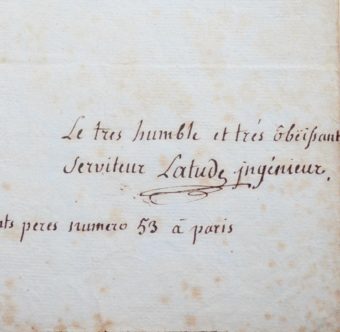 Le tres humble et trés ôbëissant
serviteur Latude ingénieur.
nts peres numero 53 à paris